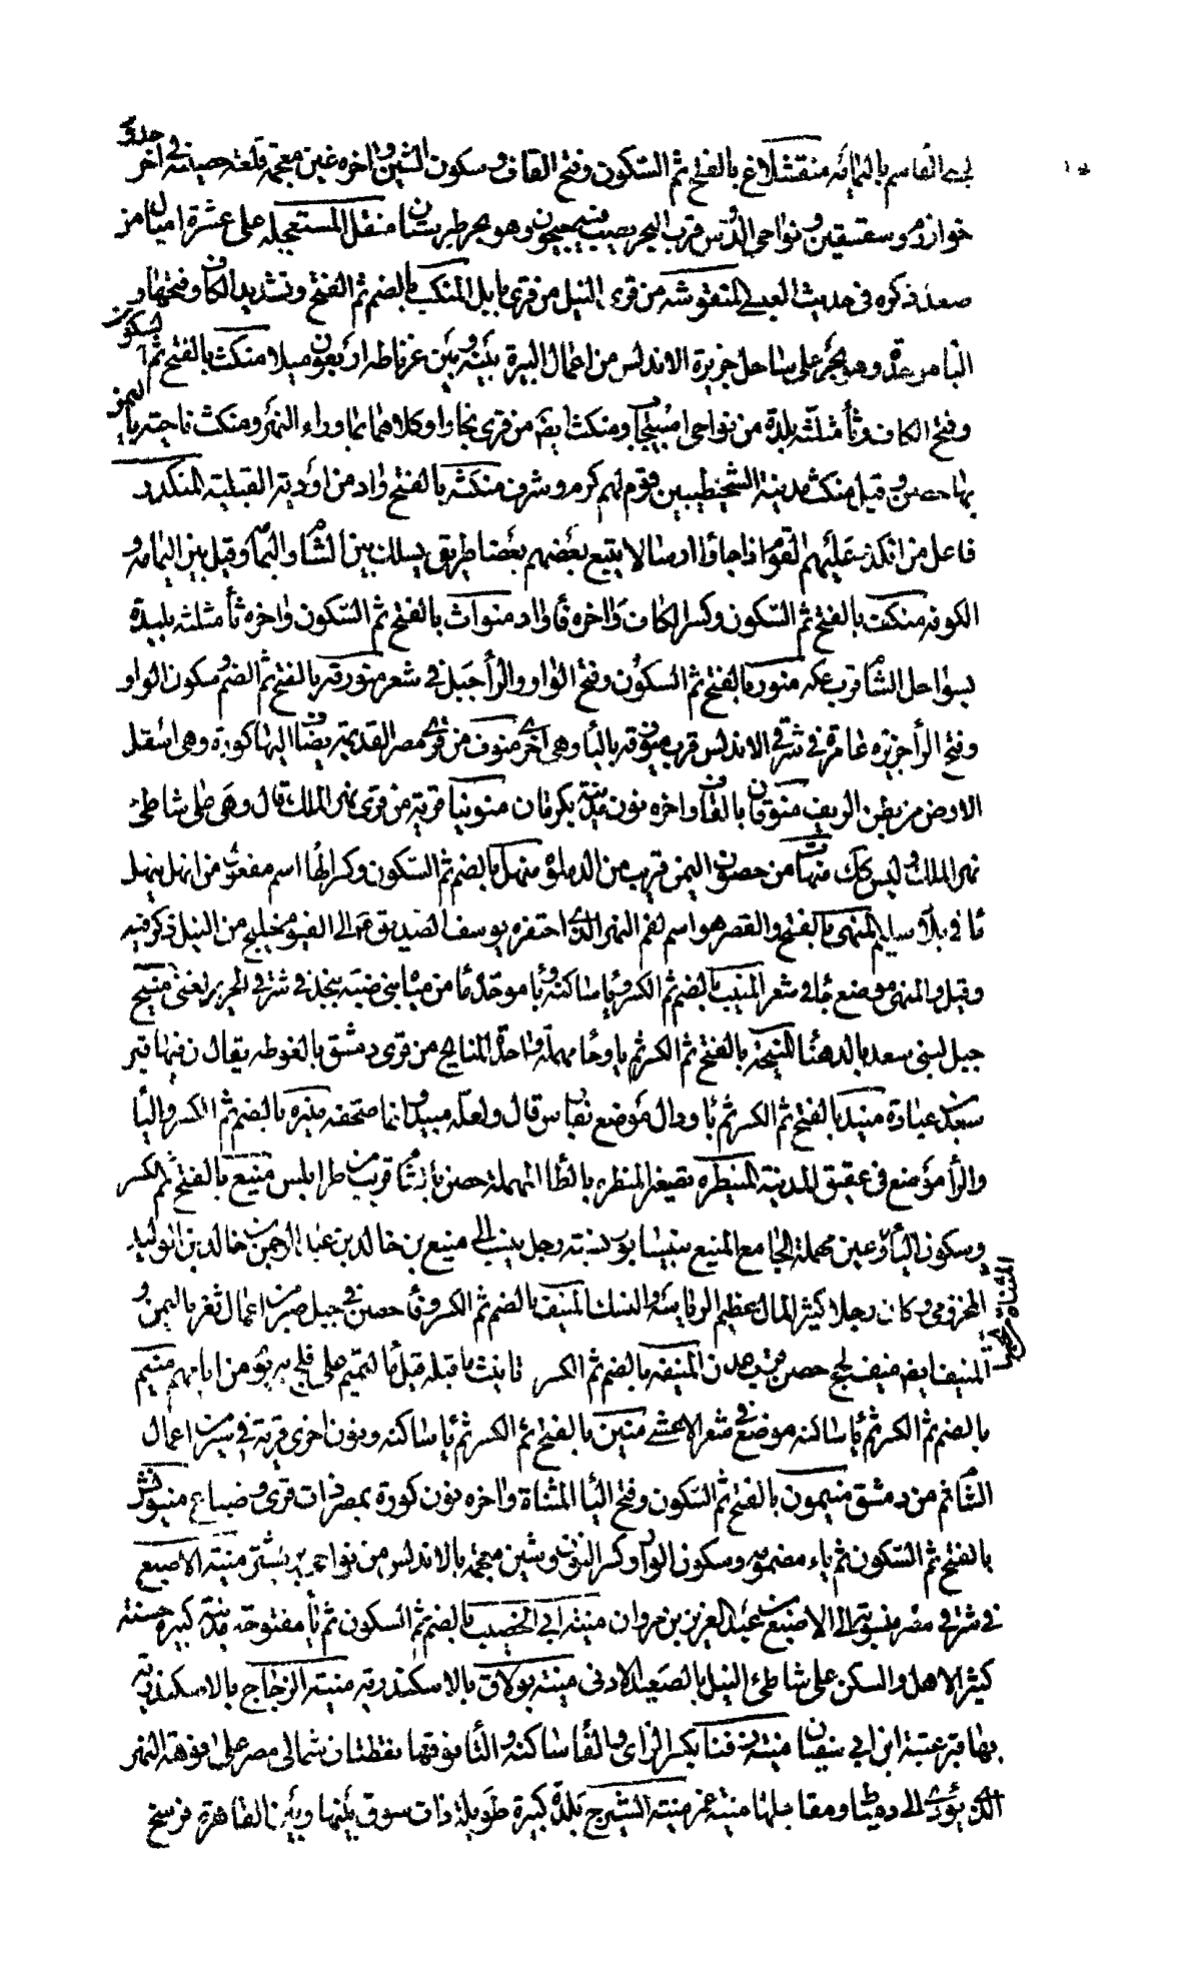 لبي القاسم باليمامة منقشلاغ بالفتح ثم السكون وفتح القاف وسكون الشين واخره غين معجمة قلعة حصينة في اخر حدود
خوارزم وسقسقين ونواحي الروس قرب البحر يصب فيه جيحون وهو بحر طبرستان منقل المستعجلة على عشرة اميال من
صعد ذكره في حديث العيص المنقوشه من قرى النيل من قرى بابل المنكب بالضم ثم الفتح وتشديد الكاف وفتحها و
البا موحدة وهو بحر على ساحل جزيرة الاندلس من اعمال البيرة بينه وبين غرناطه اربعون ميلا منكث بالفتح ثم السكون
وفتح الكاف وثا مثلثه بلدة من نواحي اسبيجاب ومنكث ايضا من قرى بخارا وكلاهما بما وراء النهر ومنكث ناحية باليمن
بها حصن وقيل منكث مدينة السخطيين وقوم لهم كرم وشرف منكثه بالفتح واد من اودية القبلية المنكدر
فاعل من انكدر عليهم القوم اذا جاؤا ارسالا يتبع بعضهم بعضا طريق يسلك بين الشام واليمامة وقيل بين اليمامة و
الكوفه منكف بالفتح ثم السكون وكسر الكاف واخره فا واد منواث بالفتح ثم السكون واخره ثا مثلثه بليدة
بسواحل الشام قرب عكه منور بالفتح ثم السكون وفتح الواو والرا جبل في شعر منورقه بالفتح ثم الضم وسكون الواو
وفتح الرا جزيره عامرة في شرقي الاندلس قرب ميورقه باليا وهي اخرى منوف من قرى مصر القديمة يضاف اليها كورة وهي اسفل
الارض من بطن الريف منوقان بالقاف واخره نون مدينة بكرمان منونيا قرية من قرى نهر الملك قال وهي على شاطئ
نهر الملك وليس كذلك منهات من حصون اليمن قريب من الدملوة منهل بالضم ثم السكون وكسر الها اسم مفعول من انهل ينهل
ما في بلاد سليم المنهى بالفتح والقصر هو اسم لفم النهر الذي احتفره يوسف الصديق عم الى الفيوم خليج من النيل ذكر فيه
وقيل والمنهى موضع جا في شعر المنيب بالضم ثم الكسر ويا ساكنة وبا موحدة ما من مياه بني ضبة بنجد في شرقي الحزيز لغنى منيح
جبل لبني سعد بالدهنا المنيحة بالفتح ثم الكسر ثم يا وحا مهملة واحدة المنايح من قرى دمشق بالغوطه يقال ان فيها قبر
سعد بن عبادة منيد بالفتح ثم الكسر ثم يا ودال موضع بفارس قال ولعله ميبد وانما صحفه منيره بالضم ثم الكسر واليا
والرا موضع في عقيق المدينة المنيطره تصغير المنظره بالطا المهملة حصن بالشام قريب من طرابلس منيع بالفتح ثم الكسر
وسكون اليا وعين مهملة الجامع المنيع بنيسابور نسبته رجل ينسب الى منيع بن خالد بن عبد الرحمن بن خالد بن الوليد
المخزومي وكان رجلا كثير المال عظيم الرياسة والنسك المنيف بالضم ثم الكسر وفا حصن في جبل صبر من اعمال تعز باليمن و
المنيف ايضا منيف لحج حصن قرب عدن المنيفه بالضم ثم الكسر تانيث ما قبله قيل ما لتميم على فلج به يوم من ايامهم منيم
بالضم ثم الكسر ثم يا ساكنه موضع في شعر الاعشى منين بالفتح ثم الكسر ثم يا ساكنه ونون اخرى قرية في سنير من اعمال
الشام ثم من دمشق منيمون بالفتح ثم السكون وفتح اليا المثناة واخره نون كورة بمصر ذات قرى وضياع منيونش
بالفتح ثم السكون ثم ياء مضمومه وسكون الواو وكسر النون وشين معجمة بالاندلس من نواحي بربشتر منية الاصبغ
في شرقي مصر منسوبة الى الاصبغ بن عبد العزيز بن مروان منية ابي الخصيب بالضم ثم السكون ثم يا مفتوحة مدينة كبيرة حسنة
كثيرة الاهل والسكن على شاطئ النيل بالصعيد الادنى منية بولاق بالاسكندرية منية الزجاج بالاسكندرية
بها قبر عتبة ابن ابي سفيان منية زفتا بكسر الزاى والفا ساكنه والتا فوقها نقطتان شمالي مصر على فوهة النهر
الذي يؤدي الى دمياط ومقابلها منية غمر منية الشيرج بلدة كبيرة طويلة ذات سوق بينها وبين القاهرة فرسخ